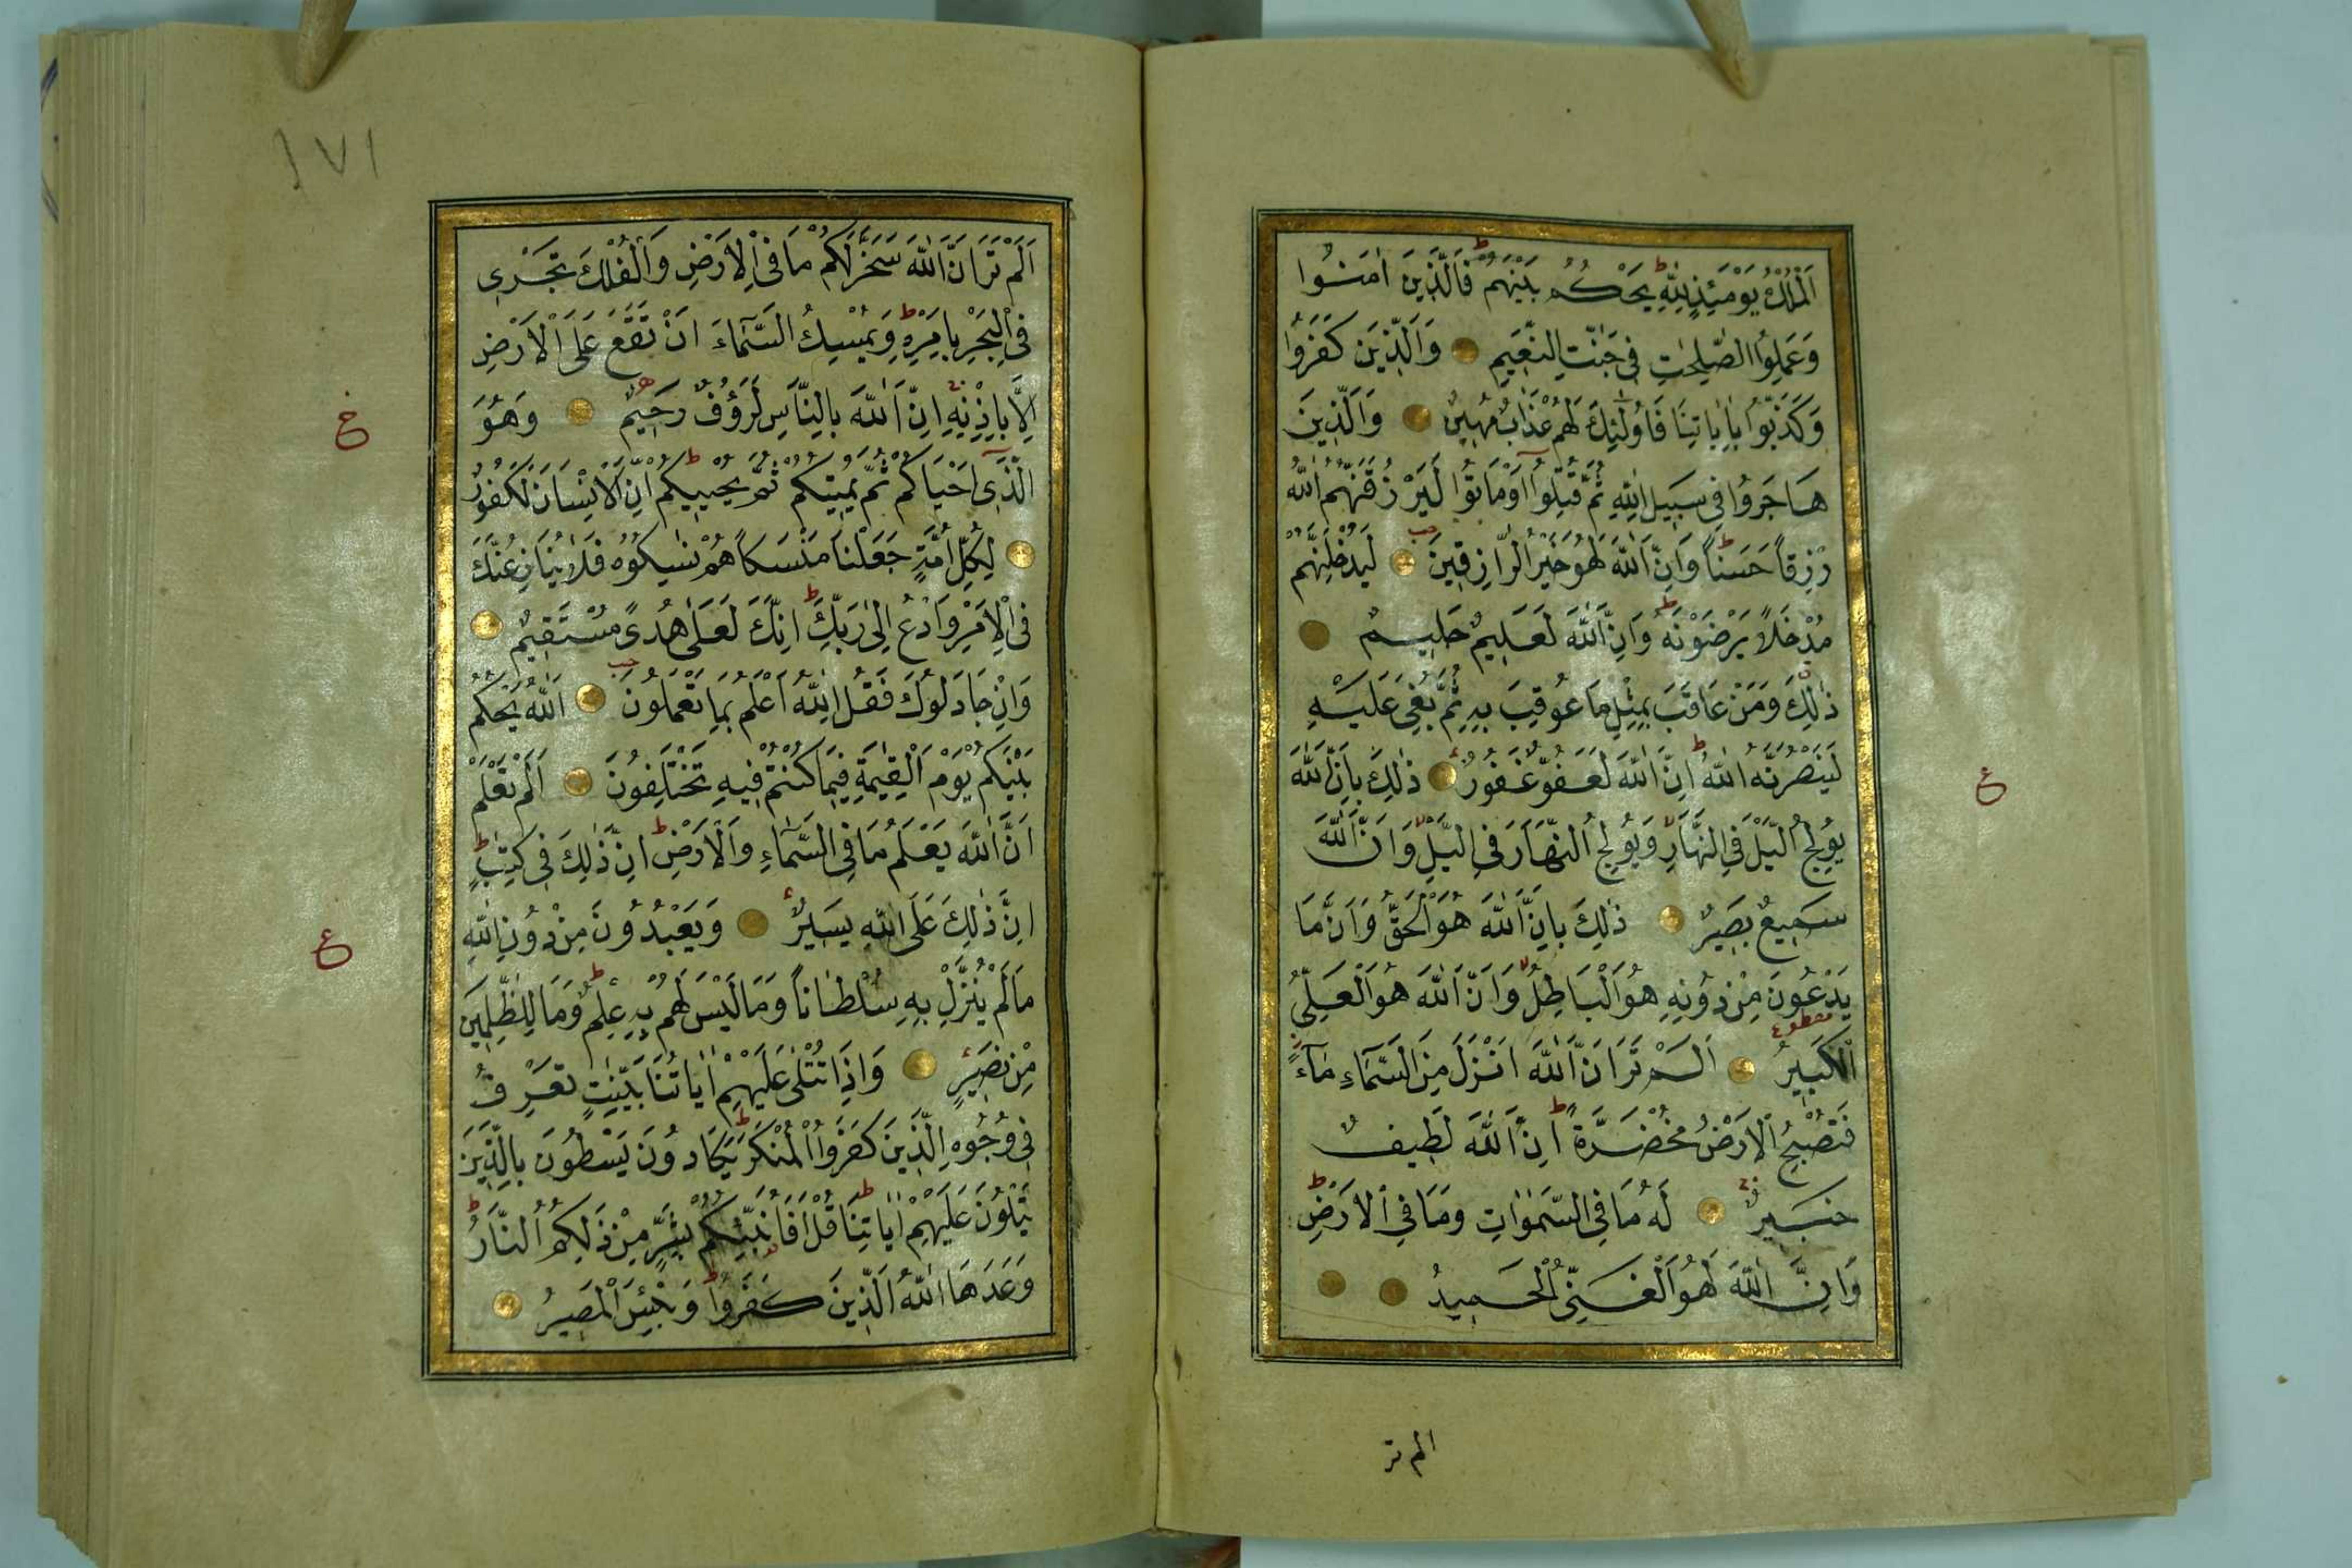 اَلْمُلْكُ يَوْمَئِذٍ لِلّٰهِ يَحْكُمُ بَيْنَهُمْ فَالَّذِينَ اٰمَنُوا
وَعَمِلُوا الصّٰلِحٰتِ فِى جَنّٰتِ النَّعِيمِ وَالَّذِينَ كَفَرُوا
وَكَذَّبُوا بِاٰيَاتِنَا فَاُولٰئِكَ لَهُمْ عَذَابٌ مُهِينٌ وَالَّذِينَ
هَاجَرُوا فِى سَبِيلِ اللّٰهِ ثُمَّ قُتِلُوا اَوْ مَاتُوا لَيَرْزُقَنَّهُمُ اللّٰهُ
رِزْقًا حَسَنًا وَاِنَّ اللّٰهَ لَهُوَ خَيْرُ الرَّازِقِينَ لَيُدْخِلَنَّهُمْ
مُدْخَلًا يَرْضَوْنَهُ وَاِنَّ اللّٰهَ لَعَلِيمٌ حَلِيمٌ
ذٰلِكَ وَمَنْ عَاقَبَ بِمِثْلِ مَا عُوقِبَ بِهِ ثُمَّ بُغِىَ عَلَيْهِ
لَيَنْصُرَنَّهُ اللّٰهُ اِنَّ اللّٰهَ لَعَفُوٌّ غَفُورٌ ذٰلِكَ بِاَنَّ اللّٰهَ
يُولِجُ الَّيْلَ فِى النَّهَارِ وَيُولِجُ النَّهَارَ فِى الَّيْلِ وَاَنَّ اللّٰهَ
سَمِيعٌ بَصِيرٌ ذٰلِكَ بِاَنَّ اللّٰهَ هُوَ الْحَقُّ وَاَنَّ مَا
يَدْعُونَ مِنْ دُونِهِ هُوَ الْبَاطِلُ وَاَنَّ اللّٰهَ هُوَ الْعَلِىُّ
الْكَبِيرُ اَلَمْ تَرَ اَنَّ اللّٰهَ اَنْزَلَ مِنَ السَّمَاءِ مَاءً
فَتُصْبِحُ الْاَرْضُ مُخْضَرَّةً اِنَّ اللّٰهَ لَطِيفٌ
خَبِيرٌ لَهُ مَا فِى السَّمٰوَاتِ وَمَا فِى الْاَرْضِ
وَاِنَّ اللّٰهَ لَهُوَ الْغَنِىُّ الْحَمِيدُ
الم تر
ع
١٧١
اَلَمْ تَرَ اَنَّ اللّٰهَ سَخَّرَ لَكُمْ مَا فِى الْاَرْضِ وَالْفُلْكَ تَجْرِى
فِى الْبَحْرِ بِاَمْرِهِ وَيُمْسِكُ السَّمَاءَ اَنْ تَقَعَ عَلَى الْاَرْضِ
اِلَّا بِاِذْنِهِ اِنَّ اللّٰهَ بِالنَّاسِ لَرَؤُفٌ رَحِيمٌ وَهُوَ
الَّذِى اَحْيَاكُمْ ثُمَّ يُمِيتُكُمْ ثُمَّ يُحْيِيكُمْ اِنَّ الْاِنْسَانَ لَكَفُورٌ
لِكُلِّ اُمَّةٍ جَعَلْنَا مَنْسَكًا هُمْ نَاسِكُوهُ فَلَا يُنَازِعُنَّكَ
فِى الْاَمْرِ وَادْعُ اِلٰى رَبِّكَ اِنَّكَ لَعَلٰى هُدًى مُسْتَقِيمٍ
وَاِنْ جَادَلُوكَ فَقُلِ اللّٰهُ اَعْلَمُ بِمَا تَعْمَلُونَ اَللّٰهُ يَحْكُمُ
بَيْنَكُمْ يَوْمَ الْقِيٰمَةِ فِيمَا كُنْتُمْ فِيهِ تَخْتَلِفُونَ اَلَمْ تَعْلَمْ
اَنَّ اللّٰهَ يَعْلَمُ مَا فِى السَّمَاءِ وَالْاَرْضِ اِنَّ ذٰلِكَ فِى كِتٰبٍ
اِنَّ ذٰلِكَ عَلَى اللّٰهِ يَسِيرٌ وَيَعْبُدُونَ مِنْ دُونِ اللّٰهِ
مَا لَمْ يُنَزِّلْ بِهِ سُلْطَانًا وَمَا لَيْسَ لَهُمْ بِهِ عِلْمٌ وَمَا لِلظّٰلِمِينَ
مِنْ نَصِيرٍ وَاِذَا تُتْلٰى عَلَيْهِمْ اٰيَاتُنَا بَيِّنٰتٍ تَعْرِفُ
فِى وُجُوهِ الَّذِينَ كَفَرُوا الْمُنْكَرَ يَكَادُونَ يَسْطُونَ بِالَّذِينَ
يَتْلُونَ عَلَيْهِمْ اٰيَاتِنَا قُلْ اَفَاُنَبِّئُكُمْ بِشَرٍّ مِنْ ذٰلِكُمُ النَّارُ
وَعَدَهَا اللّٰهُ الَّذِينَ كَفَرُوا وَبِئْسَ الْمَصِيرُ
خ
ع